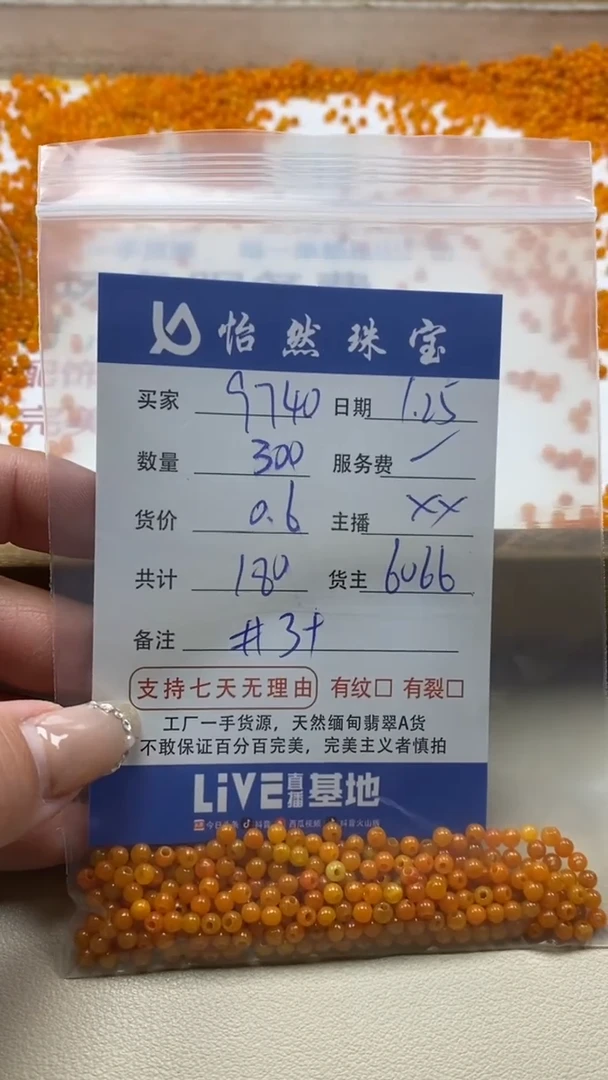 怡然珠宝
买家 9740 日期 1.25
数量 300 服务费 /
货价 0.6 主播 XX
共计 180 货主 6066
备注 #3+
支持七天无理由 有纹□ 有裂□
工厂一手货源，天然缅甸翡翠A货
不敢保证百分百完美，完美主义者慎拍
LiVE直播基地
今日头条 抖音 西瓜视频 抖音火山版